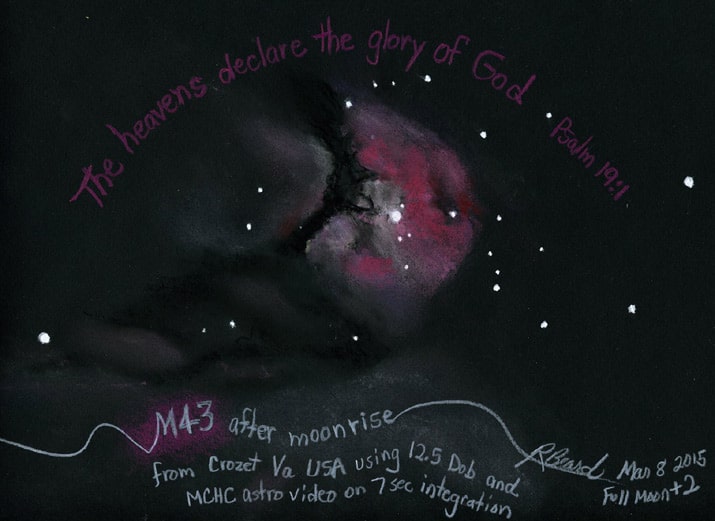 The heavens declare the glory of God Psalm 19:1
M43 after moonrise
from Crozet Va USA using 12.5 Dob and
MCHC astro video on 7 sec integration
RBeard Mar 8 2015
Full Moon+2